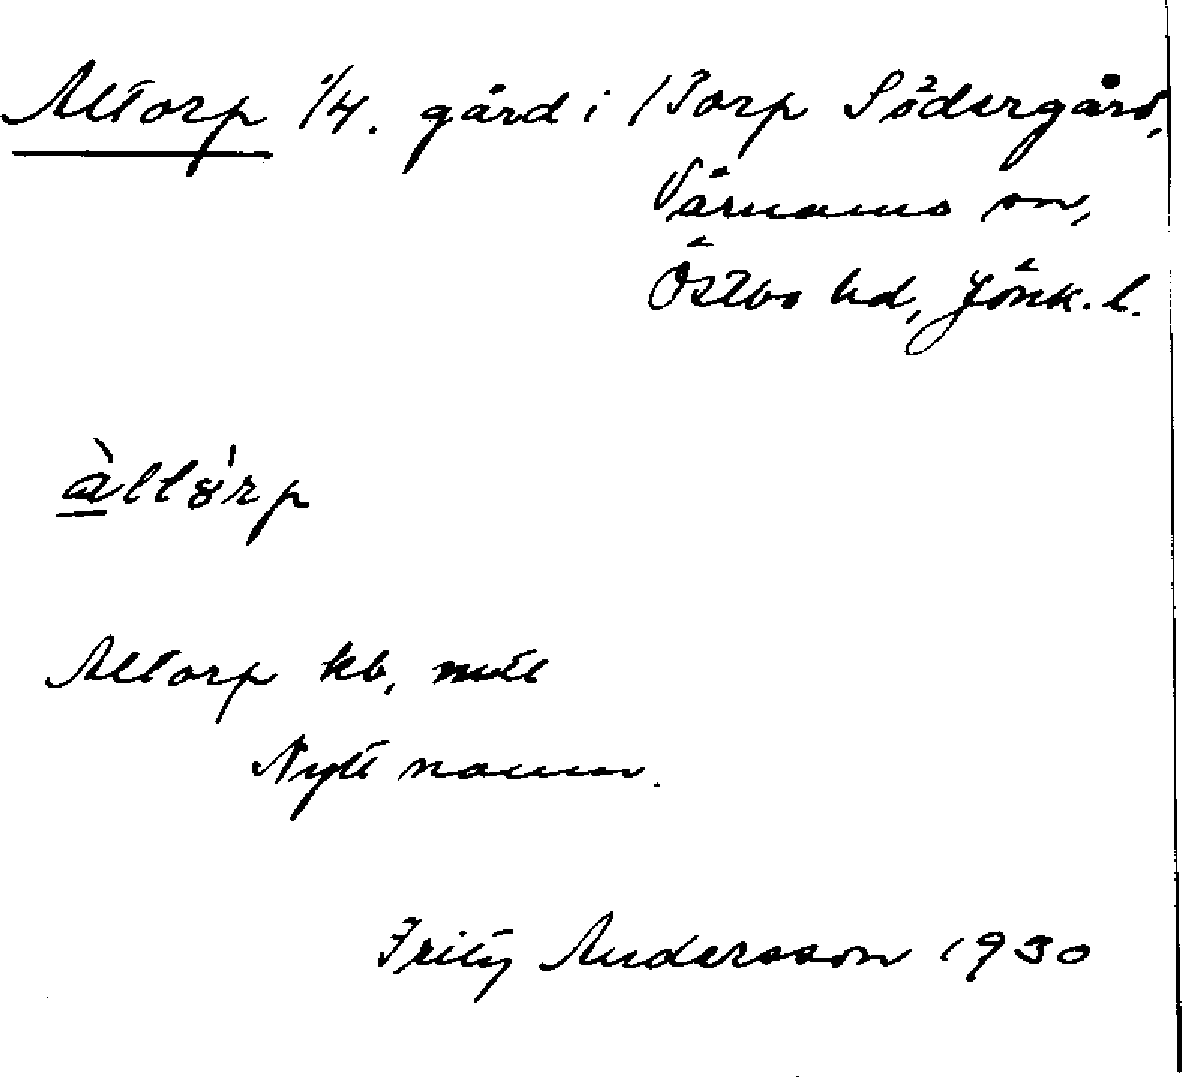 Altorp 1/4. gård i /Torp Södergård,
Värnamo sn,
Östbo hd, Jönk. l.
àlltórp
Altorp kb, mtl
Nytt namn.
Fritz Andersson 1930